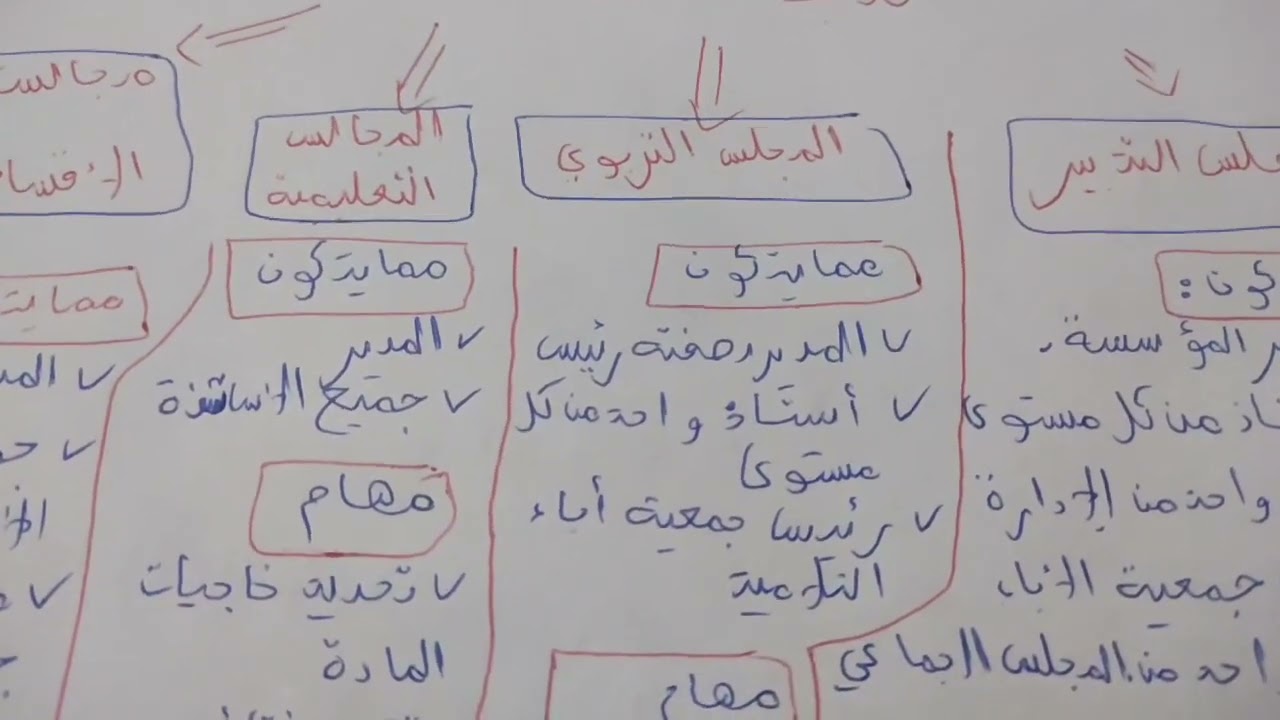 جلس التدبير
كون :
ر المؤسسة.
تاذ من كل مستوى
واحد من الإدارة
جمعية الاباء
احد من المجلس الجماعي
المجلس التربوي
ممايتكون
✓ المدير بصفته رئيس
✓ أستاذ واحد من كل
مستوى
✓ رئيس جمعية أباء
التلاميذ
مهام
المجالس
التعليمية
ممايتكون
✓ المدير
✓ جميع الاساتذة
مهام
✓ تحديد حاجيات
المادة
مجالس
الاقسا
ممايت
✓ المد